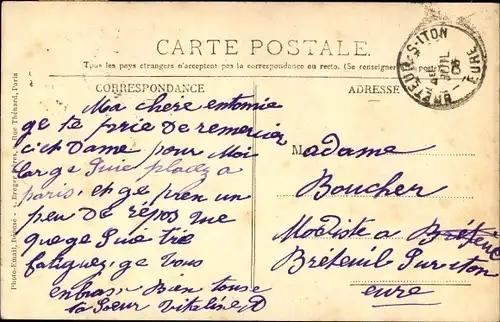 CARTE POSTALE
Tous les pays étrangers n'acceptent pas la correspondance au recto. (Se renseigner
CORRESPONDANCE
ADRESSE
Ma chere entomie
ge te prie de remercier
c'et Dame pour Moi
large Suie
paris, et ge pren un
peu de répos vue
que ge Suie trè
fatiguez, ge vous
enbras Bien touse
ta Soeur Vitaline
Madame
Boucher
Modiste a
Bréteuil Sur iton
eure
BRETEUIL-S-ITON
EURE
Photo-Email, Breger Frères, Rue Thénard, Paris